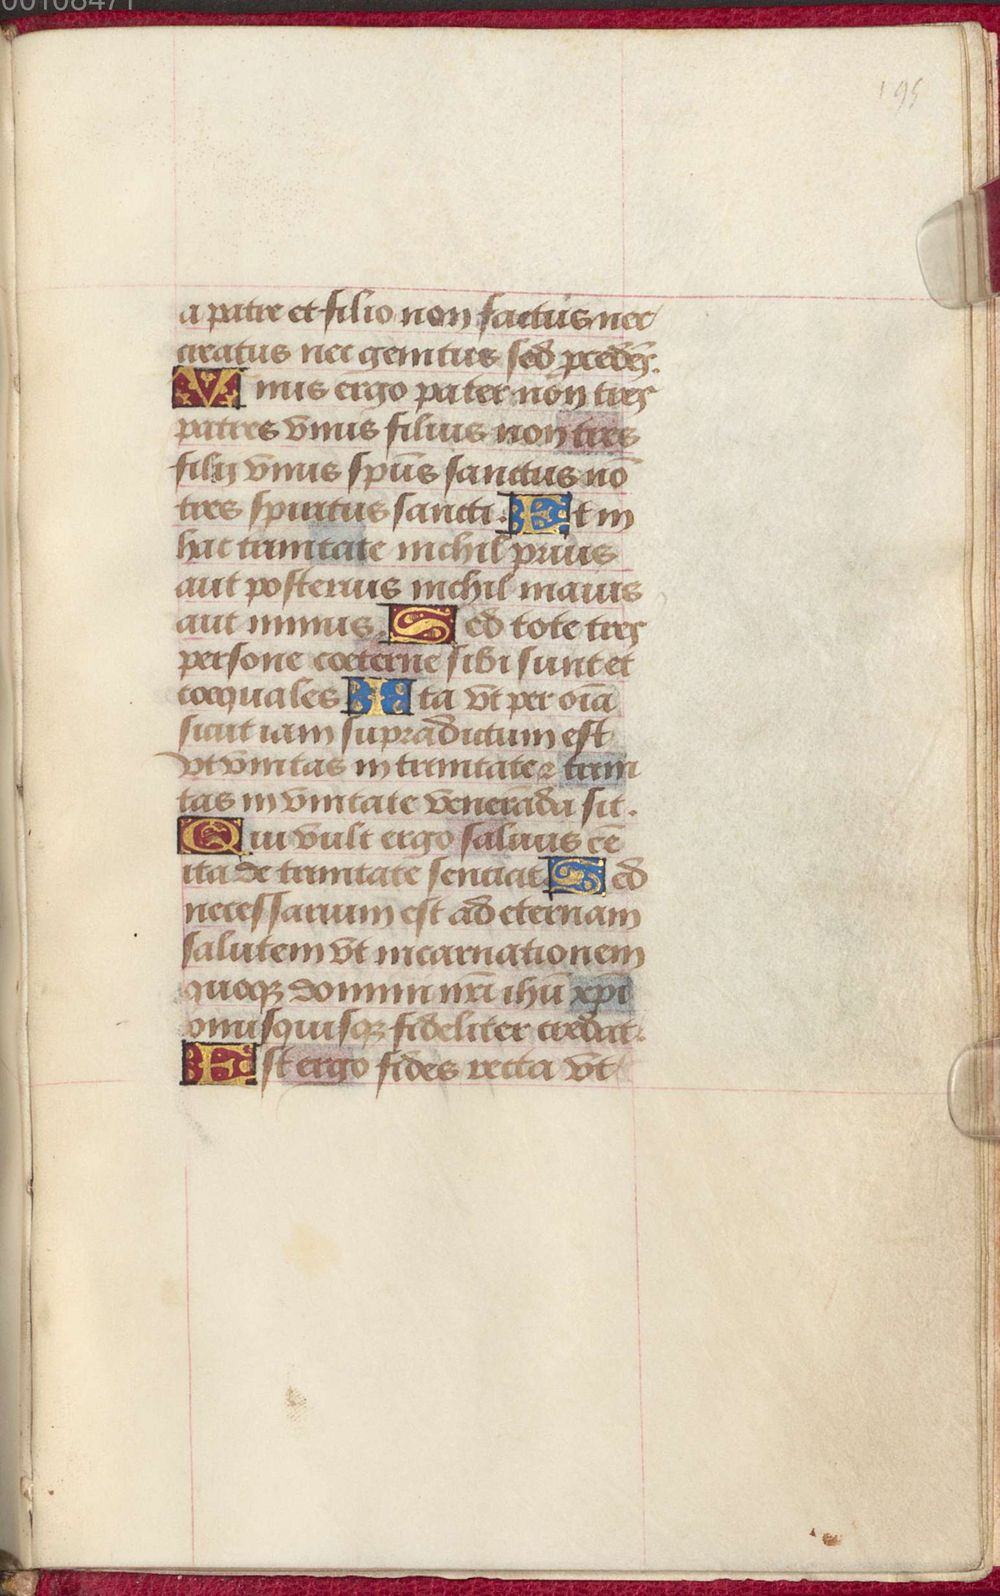 00108471
195
a patre et filio non factus nec
creatus nec genitus sed ꝓcedēs.
Vnus ergo pater non tres
patres vnus filius non tres
filij vnus spūs sanctus nō
tres spiritus sancti. Et in
hac trinitate nichil prius
aut posterius nichil maius
aut minus. Sed tote tres
persone coeterne sibi sunt et
coequales Ita vt per oīa
sicut iam supradictum est
vt vnitas in trinitate ⁊ trini
tas in vnitate venerāda sit.
Qui vult ergo saluus eē
ita de trinitate senciat Sed
necessarium est ad eternam
salutem vt incarnationem
quoqꝫ domini nrī ihū xp̄i
vnusquisqꝫ fideliter credat.
Est ergo fides recta vt